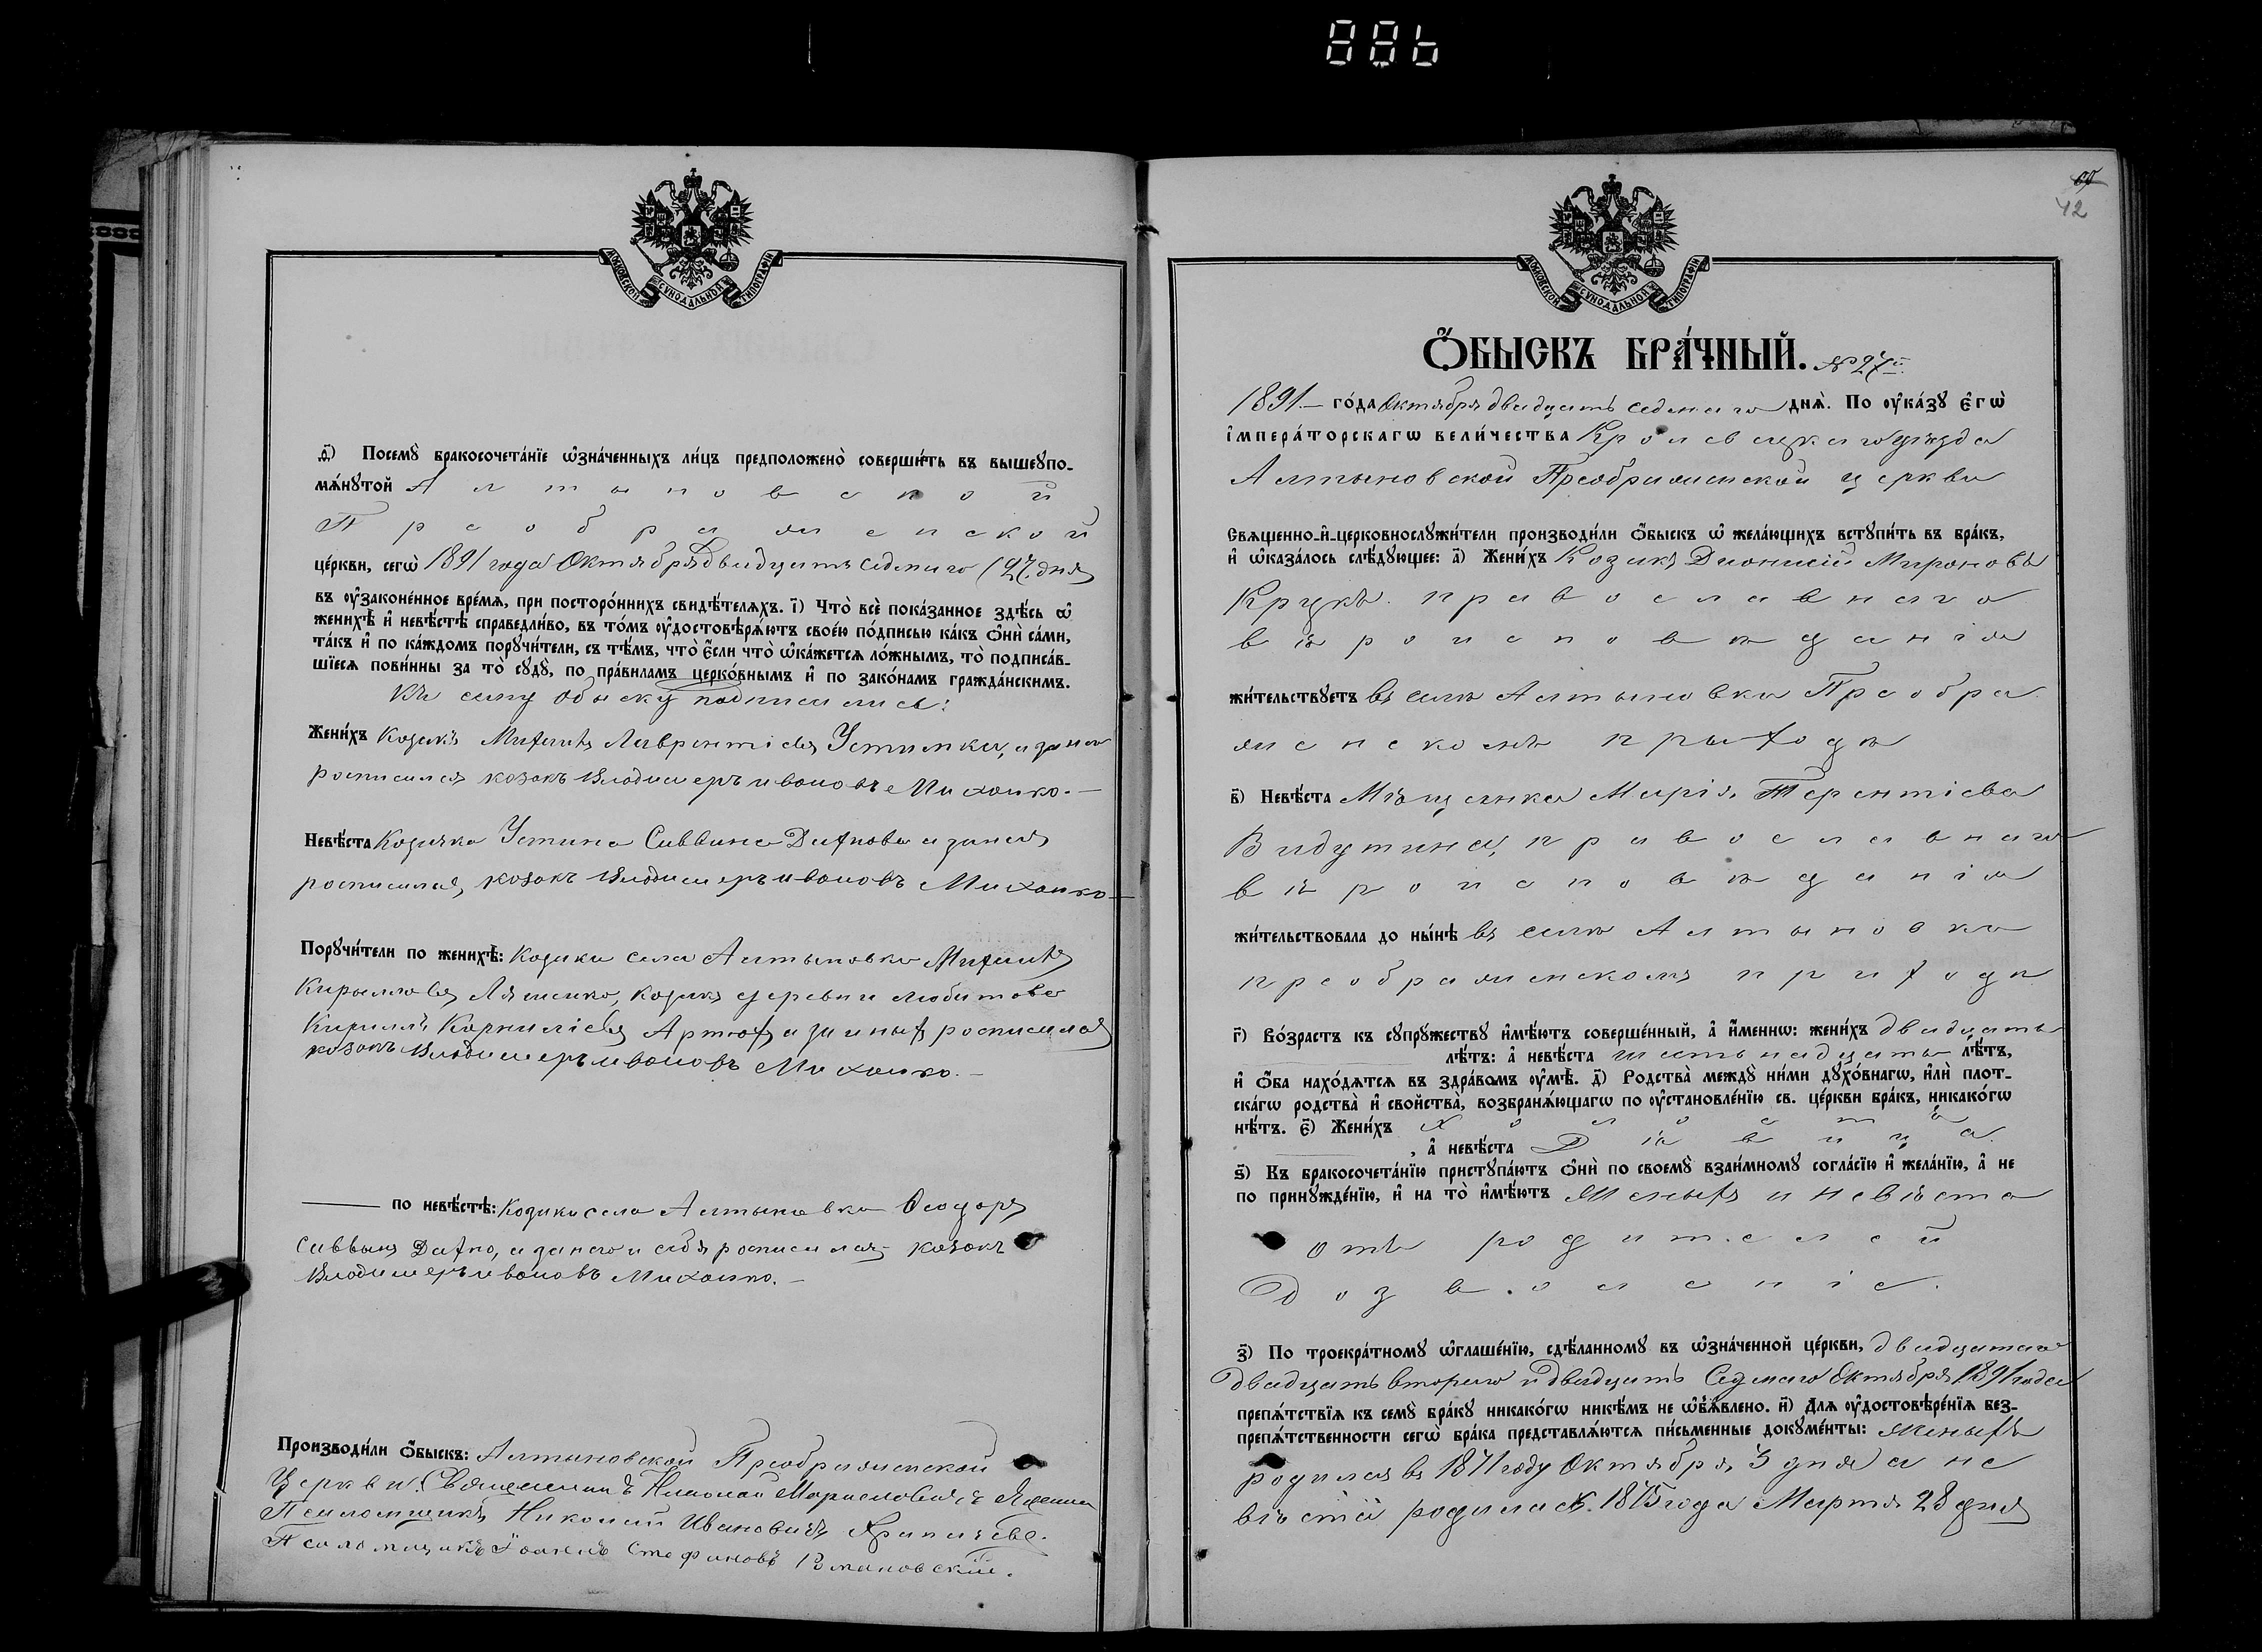 42
МОСКОВСКОЙ СУНОДАЛЬНОЙ ТИПОГРАФІИ
ѳ҃) Посемꙋ̀ бракосочета́нїе ѡ҆зна́ченныхъ ли́цъ предположено̀ соверши́ть въ вышеꙋпо-
мѧ́нꙋтой Алтыновской
Преображенской
це́ркви, сегѡ̀ 1891 года Октября двадцать седмаго (27. дня
въ ᲂу҆законе́нное вре́мѧ, при посторо́ннихъ свидѣ́телѧхъ. і҃) Что̀ всѐ пока́занное здѣ́сь ѡ҆
женихѣ̀ и҆ невѣ́стѣ справедли́во, въ то́мъ ᲂу҆достовѣрѧ́ютъ свое́ю по́дписью ка́къ ѻ҆нѝ са́ми,
та́къ и҆ по ка́ждомъ порꙋчи́тели, съ тѣ́мъ, что̀ е҆́сли что̀ ѡ҆ка́жетсѧ ло́жнымъ, то̀ подписа́в-
шїесѧ пови́нны за то̀ сꙋдꙋ̀, по пра́виламъ церко́внымъ и҆ по зако́намъ гражда́нскимъ.
Къ сему обыску подписались:
Жени́хъ Козакъ Михаилъ Лаврентіевъ Устимка, а за него
росписался козакъ Владимеръ ивановъ Миханко.—
Невѣ́ста Козачка Устина Саввина Дахнова а за нея
росписался, козакъ Владимеръ ивановъ Миханко—
Порꙋчи́тели по женихѣ̀: Козаки села Алтыновки Михаилъ
Кирылловъ Ляшенко, козакъ деревни Любитова
Кириллъ Корниліевъ Артюхъ а за иныхъ росписался
козакъ Владимеръ ивановъ Миханко.—
— по невѣ́стѣ: Козаки села Алтыновки Ѳеодоръ
Саввинъ Дахно, а за него и себя росписался козакъ
Владимеръ ивановъ Миханко.—
Производи́ли ѻ҆́быскъ: Алтыновской Преображенской
Церкви: Священникъ Николай
Псаломщикъ Николай Ивановичъ
Псаломщикъ Іоаннъ Стефановъ Романовскій.
МОСКОВСКОЙ СУНОДАЛЬНОЙ ТИПОГРАФІИ
Ѻ҆́БЫСКЪ БРА́ЧНЫЙ. №27й.
1891.— го́да Октября двадцать седмаго днѧ̀. По ᲂу҆ка́зꙋ є҆гѡ̀
і҆мпера́торскагѡ вели́чества Кролевецкаго уѣзда
Алтыновской Преображенской церкви
Свѧщенно-и҆-церковнослꙋжи́тели производи́ли ѻ҆́быскъ ѡ҆ жела́ющихъ встꙋпи́ть въ бра́къ,
и҆ ѡ҆каза́лось слѣ́дꙋющее: а҃) Жени́хъ Козакъ Діонисій Мироновъ
Круκъ. православнаго
вѣроисповѣданія
жи́тельствꙋетъ въ селѣ Алтыновкѣ Преобра
женскомъ приходѣ
в҃) Невѣ́ста Мѣщанка Марія Терентіева
Видутина, православнаго
вѣроисповѣданія
жи́тельствовала до ны́нѣ въ селѣ Алтыновкѣ
преображенскомъ приходѣ
г҃) Во́зрастъ къ сꙋпрꙋ́жествꙋ и҆мѣ́ютъ соверше́нный, а҆ и҆́меннѡ: жени́хъ двадцать
лѣ́тъ: а҆ невѣ́ста шестьнадцать лѣ́тъ,
и҆ ѻ҆́ба нахо́дѧтсѧ въ здра́вомъ ᲂу҆мѣ̀. д҃) Родства̀ междꙋ̀ ни́ми дꙋхо́внагѡ, и҆лѝ плот-
ска́гѡ родства̀ и҆ свойства̀, возбранѧ́ющагѡ по ᲂу҆становле́нїю св. це́ркви бра́къ, никако́гѡ
нѣ́тъ. є҃) Жени́хъ Холостъ
, а҆ невѣ́ста Дѣвица.
ѕ҃) Къ бракосочета́нїю пристꙋпа́ютъ ѻ҆нѝ по своемꙋ̀ взаи́мномꙋ согла́сїю и҆ жела́нїю, а҆ не
по принꙋжде́нїю, и҆ на то̀ и҆мѣ́ютъ Женыхъ и невѣста
отъ родителей
дозволеніе.
з҃) По троекра́тномꙋ ѡ҆глаше́нїю, сдѣ́ланномꙋ въ ѡ҆зна́ченной це́ркви, двадцатаго
двадцать втораго и двадцать Седмаго Октября 1891 года
препѧ́тствїѧ къ семꙋ̀ бра́кꙋ никако́гѡ никѣ́мъ не ѡ҆б̾ѧ́влено. и҃) Длѧ ᲂу҆достовѣре́нїѧ без-
препѧ́тственности сегѡ̀ бра́ка представлѧ́ютсѧ пи́сьменные докꙋме́нты: женыхъ
родился въ 1871 году Октября 3 дня а не
вѣста родилась. 1875 года Марта 28 дня